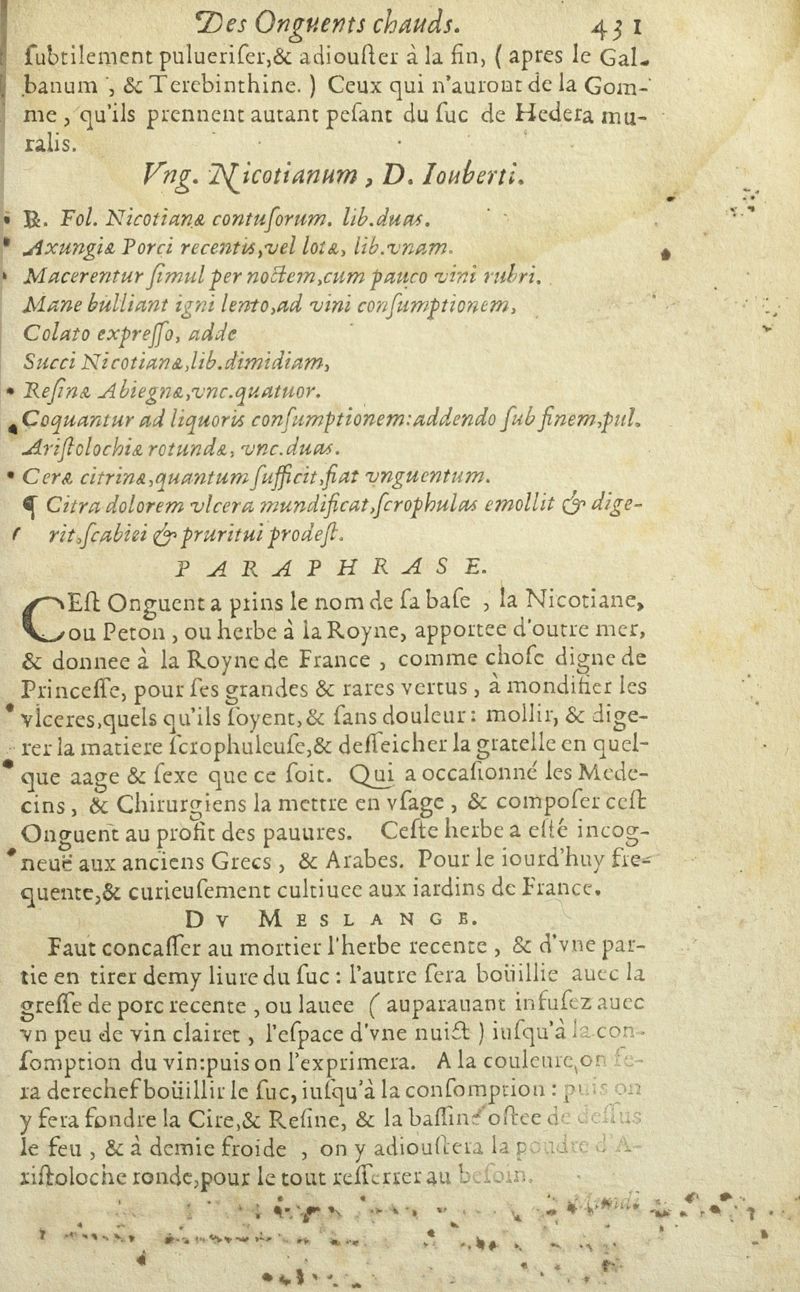 Des Onguents chauds. 431
ſubtilement puluerifer,& adiouſter à la fin, ( apres le Gal-
banum , & Terebinthine. ) Ceux qui n'auront de la Gom-
me , qu'ils prennent autant peſant du ſuc de Hedera mu-
ralis.
Vng. Nicotianum , D. Iouberti.
℞. Fol. Nicotianæ contuſorum. lib.duas.
Axungiæ Porci recentis,vel lotæ, lib.vnam.
Macerentur ſimul per noctem,cum pauco vini rubri.
Mane bulliant igni lento,ad vini conſumptionem,
Colato expreſſo, adde
Succi Nicotianæ,lib.dimidiam,
Reſinæ Abiegnæ,vnc.quatuor.
Coquantur ad liquoris conſumptionem:addendo ſub finem,pul.
Ariſtolochiæ rotundæ, vnc.duas.
Ceræ citrinæ,quantum ſufficit,fiat vnguentum.
¶ Citra dolorem vlcera mundificat,ſcrophulas emollit & dige-
rit,ſcabiei & pruritui prodeſt.
PARAPHRASE.
CEſt Onguent a prins le nom de ſa baſe , la Nicotiane,
ou Peton , ou herbe à la Royne, apportee d'outre mer,
& donnee à la Royne de France , comme choſe digne de
Princeſſe, pour ſes grandes & rares vertus , à mondifier les
vlceres,quels qu'ils ſoyent,& ſans douleur: mollir, & dige-
rer la matiere ſcrophuleuſe,& deſſeicher la gratelle en quel-
que aage & ſexe que ce ſoit. Qui a occaſionné les Mede-
cins , & Chirurgiens la mettre en vſage , & compoſer ceſt
Onguent au profit des pauures. Ceſte herbe a eſté incog-
neuë aux anciens Grecs , & Arabes. Pour le iourd'huy fre-
quente,& curieuſement cultiuee aux iardins de France.
DV MESLANGE.
Faut concaſſer au mortier l'herbe recente , & d'vne par-
tie en tirer demy liure du ſuc : l'autre ſera boüillie auec la
greſſe de porc recente , ou lauee ( auparauant infuſez auec
vn peu de vin clairet , l'eſpace d'vne nuict ) iuſqu'à la con-
ſomption du vin:puis on l'exprimera. A la couleure,on fe-
ra derechef boüillir le ſuc, iuſqu'à la conſomption : puis on
y fera fondre la Cire,& Reſine, & la baſſine oſtee de deſſus
le feu , & à demie froide , on y adiouſtera la poudre d'A-
riſtoloche ronde,pour le tout reſſerrer au beſoin.